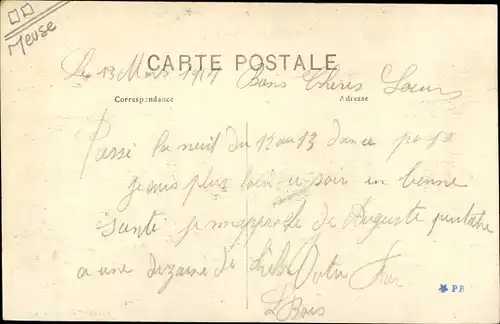 Meuse
CARTE POSTALE
Le 13 Mars 1917 Bons Chères Soeurs
Correspondance Adresse
Passé la nuit du 12 au 13 dans
je suis plus loin ce soir en bonne
santé je de Auguste peut être
a une dizaine de Votre
PE